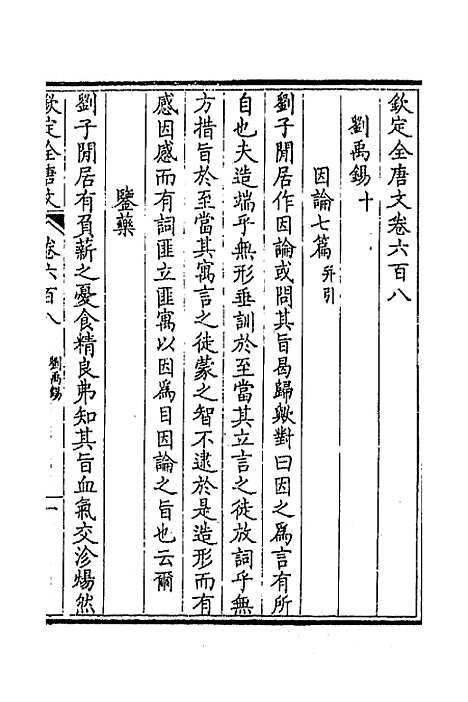 欽定全唐文卷六百八
劉禹錫十
因論七篇并引
劉子閒居作因論或問其旨曷歸歟對曰因之爲言有所
自也夫造端乎無形垂訓於至當其立言之徒放詞乎無
方措旨於至當其寓言之徒蒙之智不逮於是造形而有
感因感而有詞匪立匪寓以因爲目因論之旨也云爾
鑒藥
劉子閒居有負薪之憂食精良弗知其旨血氣交沴煬然
欽定全唐文 卷六百八 劉禹錫 一